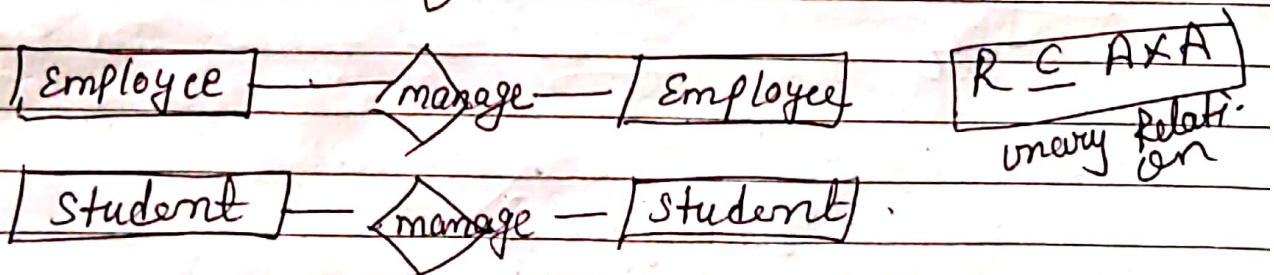 Employee manage Employee R ⊆ A×A
unary Relati-
on
Student manage Student .